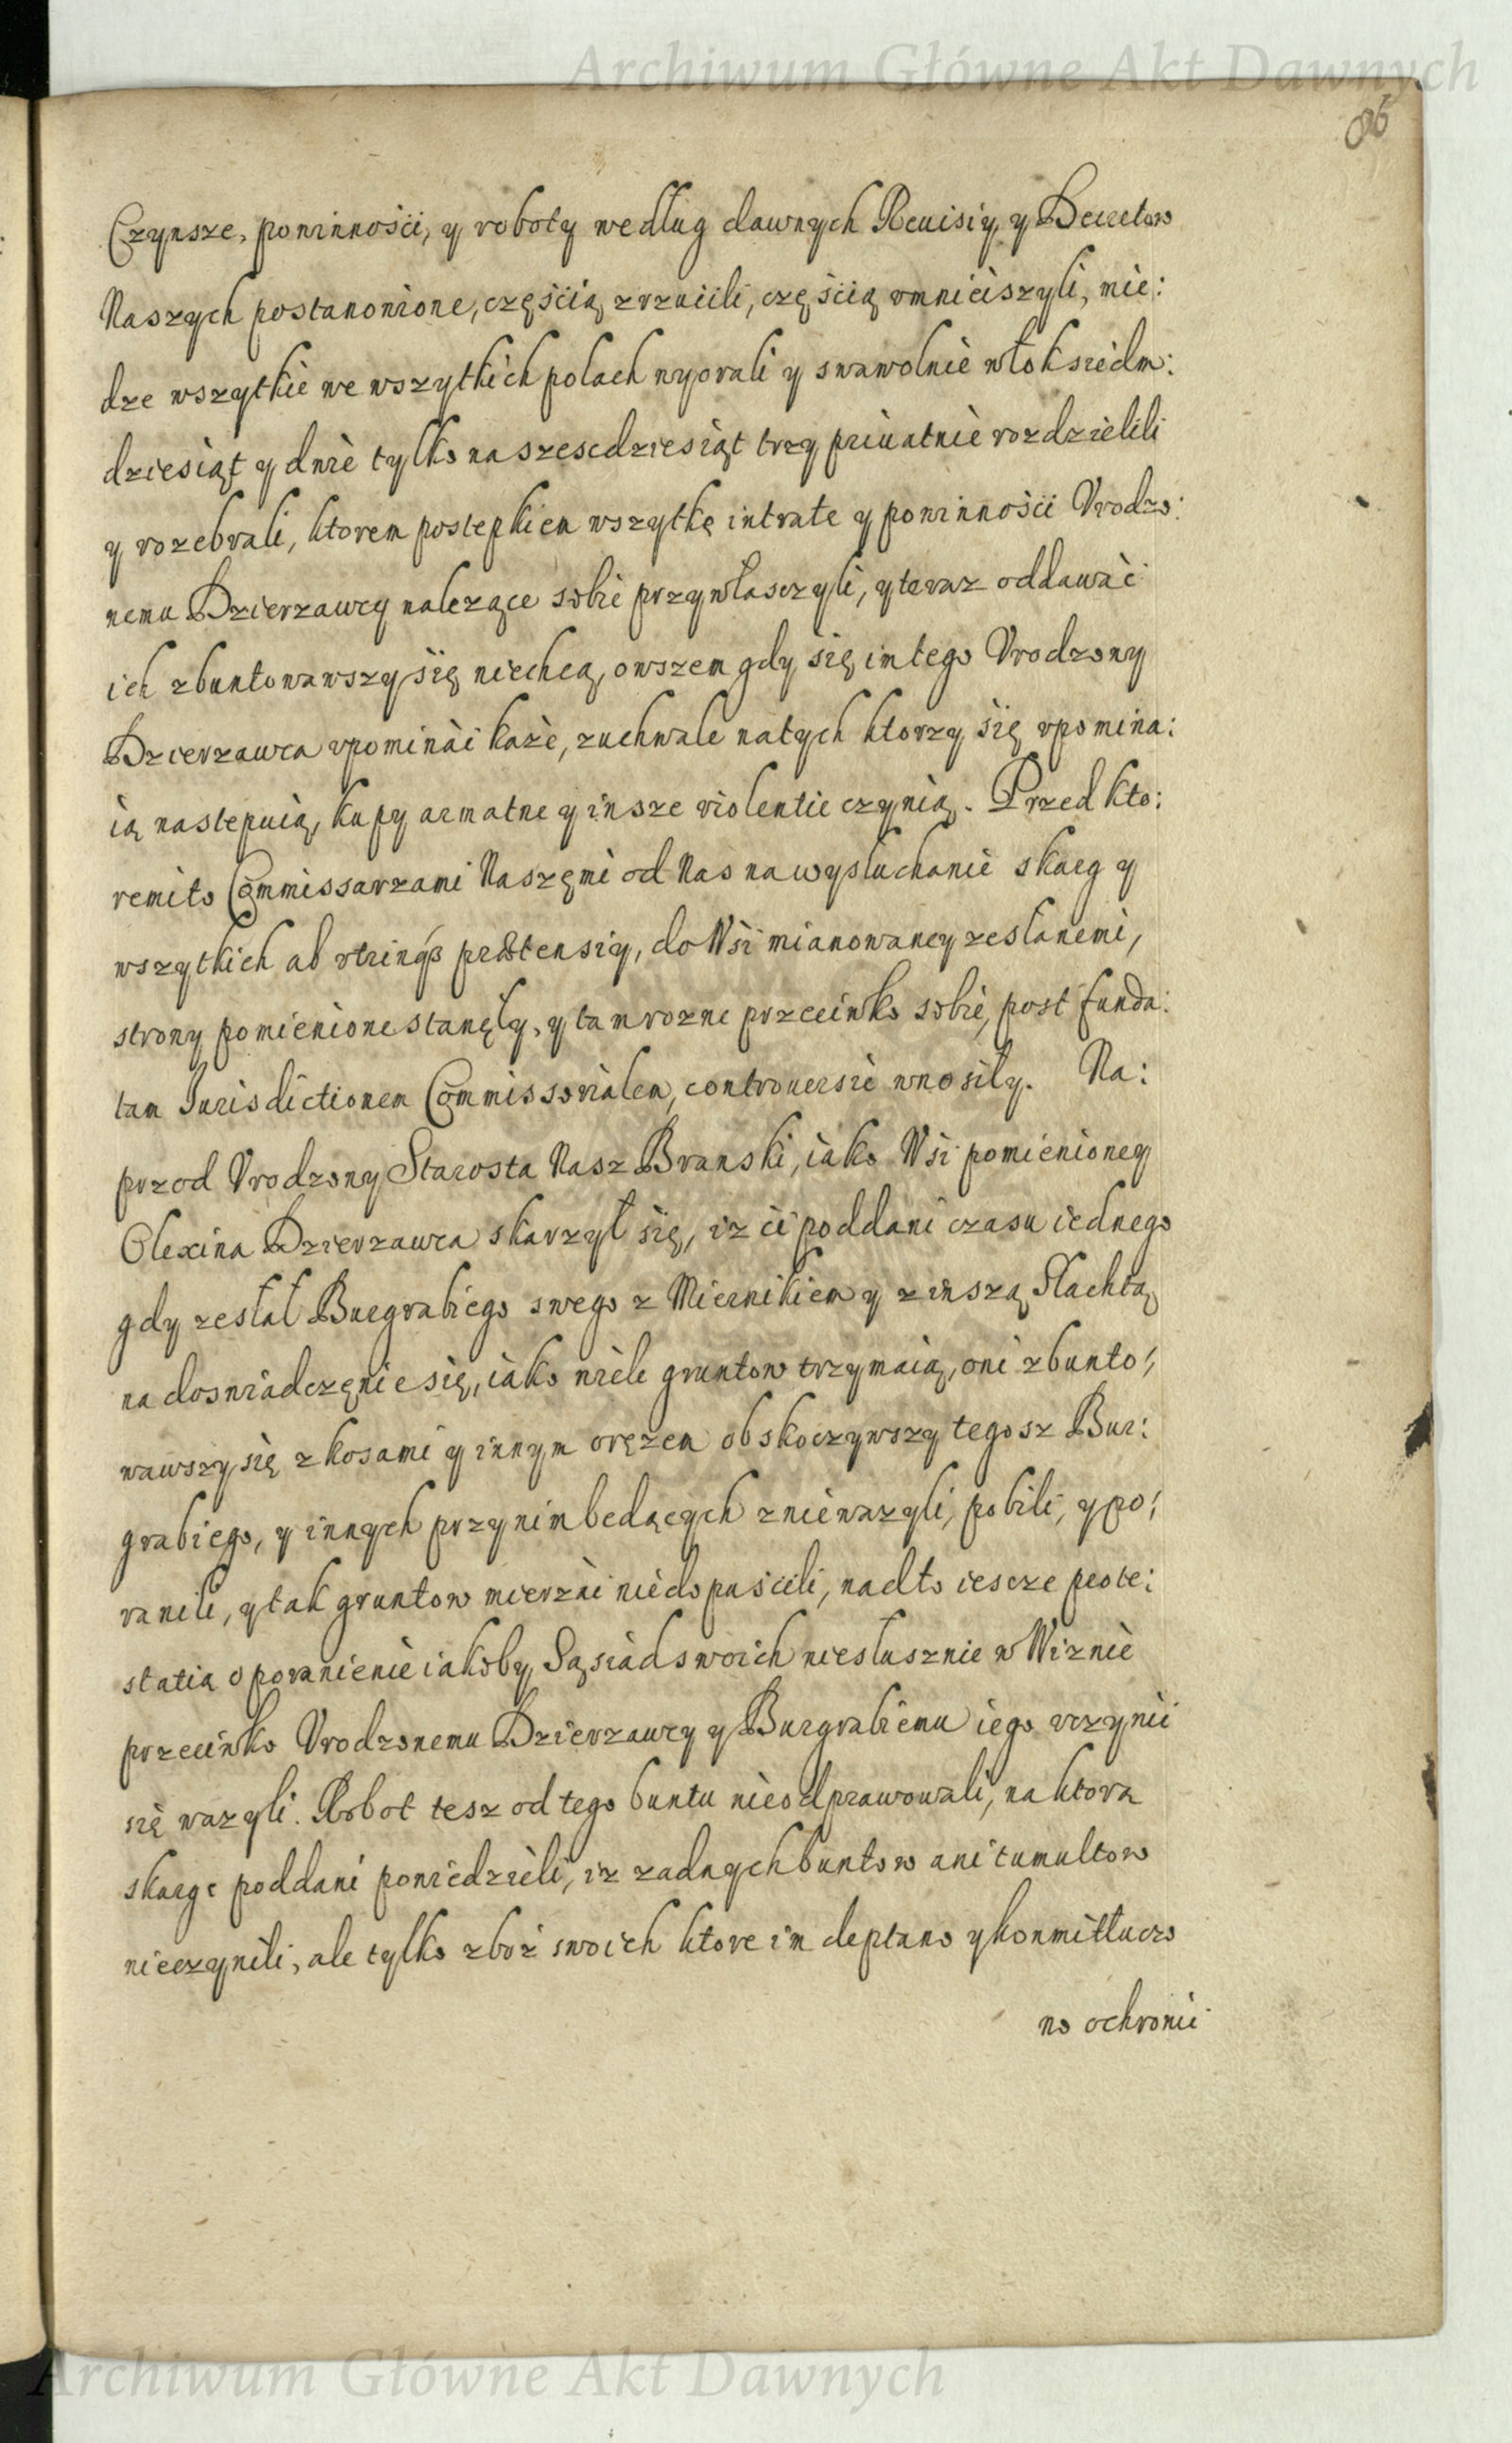 Archiwum Główne Akt Dawnych
Czynsze, powinności, y roboty według dawnych Reuisiy, y Decretow
Naszych postanowione, częścią zrzucili, częścią vmnieiszyli, mie:
dze wszytkie we wszytkich polach wyorali y swawolnie włok siedm:
dziesiąt y dwie tylko na szescdziesiąt trzy priuatnie rozdzielili
y rozebrali, ktorem postepkiem wszytkę intratę y powinności Vrodzo:
nemu Dzierzawcy nalezące sobie przywłasczyli, y teraz oddawać
ich zbuntowawszy się niechcą, owszem gdy się im tego Vrodzony
Dzierzawca vpominać kaze, zuchwale na tych ktorzy się vpomina:
ią nastepuią, kupy armatne y insze violentie czynią. Przed kto:
remito Commissarzami Naszęmi od Nas na wysłuchanie skarg y
wszytkich ab vtrinq3 prætensiy, do Wsi mianowaney zesłanemi,
strony pomienione stanęły, y tam rozne przeciwko sobie, post funda:
tam Jurisdictionem Commissorialem, controuersie wnosiły. Na:
przod Vrodzony Starosta Nasz Branski, iako Wsi pomienioney
Olexina Dzierzawca skarzył się, iz ci poddani czasu iednego
gdy zesłał Burgrabiego swego z Miernikiem y z inszą Slachtą
na doswiadczęnie się, iako wiele gruntow trzymaią, oni zbunto:
wawszy się z kosami y innym oręzem obskoczywszy tegosz Bur:
grabiego, y innych przy nim bedących zniewazyli, pobili, y po:
ranili, y tak gruntow mierzać niedopuścili, nadto iescze prote:
statią o poranienie iakoby Sąsiad swoich niesłusznie w Wiznie
przeciwko Vrodzonemu Dzierzawcy y Burgrabiemu iego vczynić
się wazyli. Robot tesz od tego buntu nieodprawowali, na ktorą
skargę poddani powiedzieli, iz zadnych buntow ani tumultow
nieczynili, ale tylko zboż swoich ktore im deptano y konmi tłuczo
no ochronić
Archiwum Główne Akt Dawnych